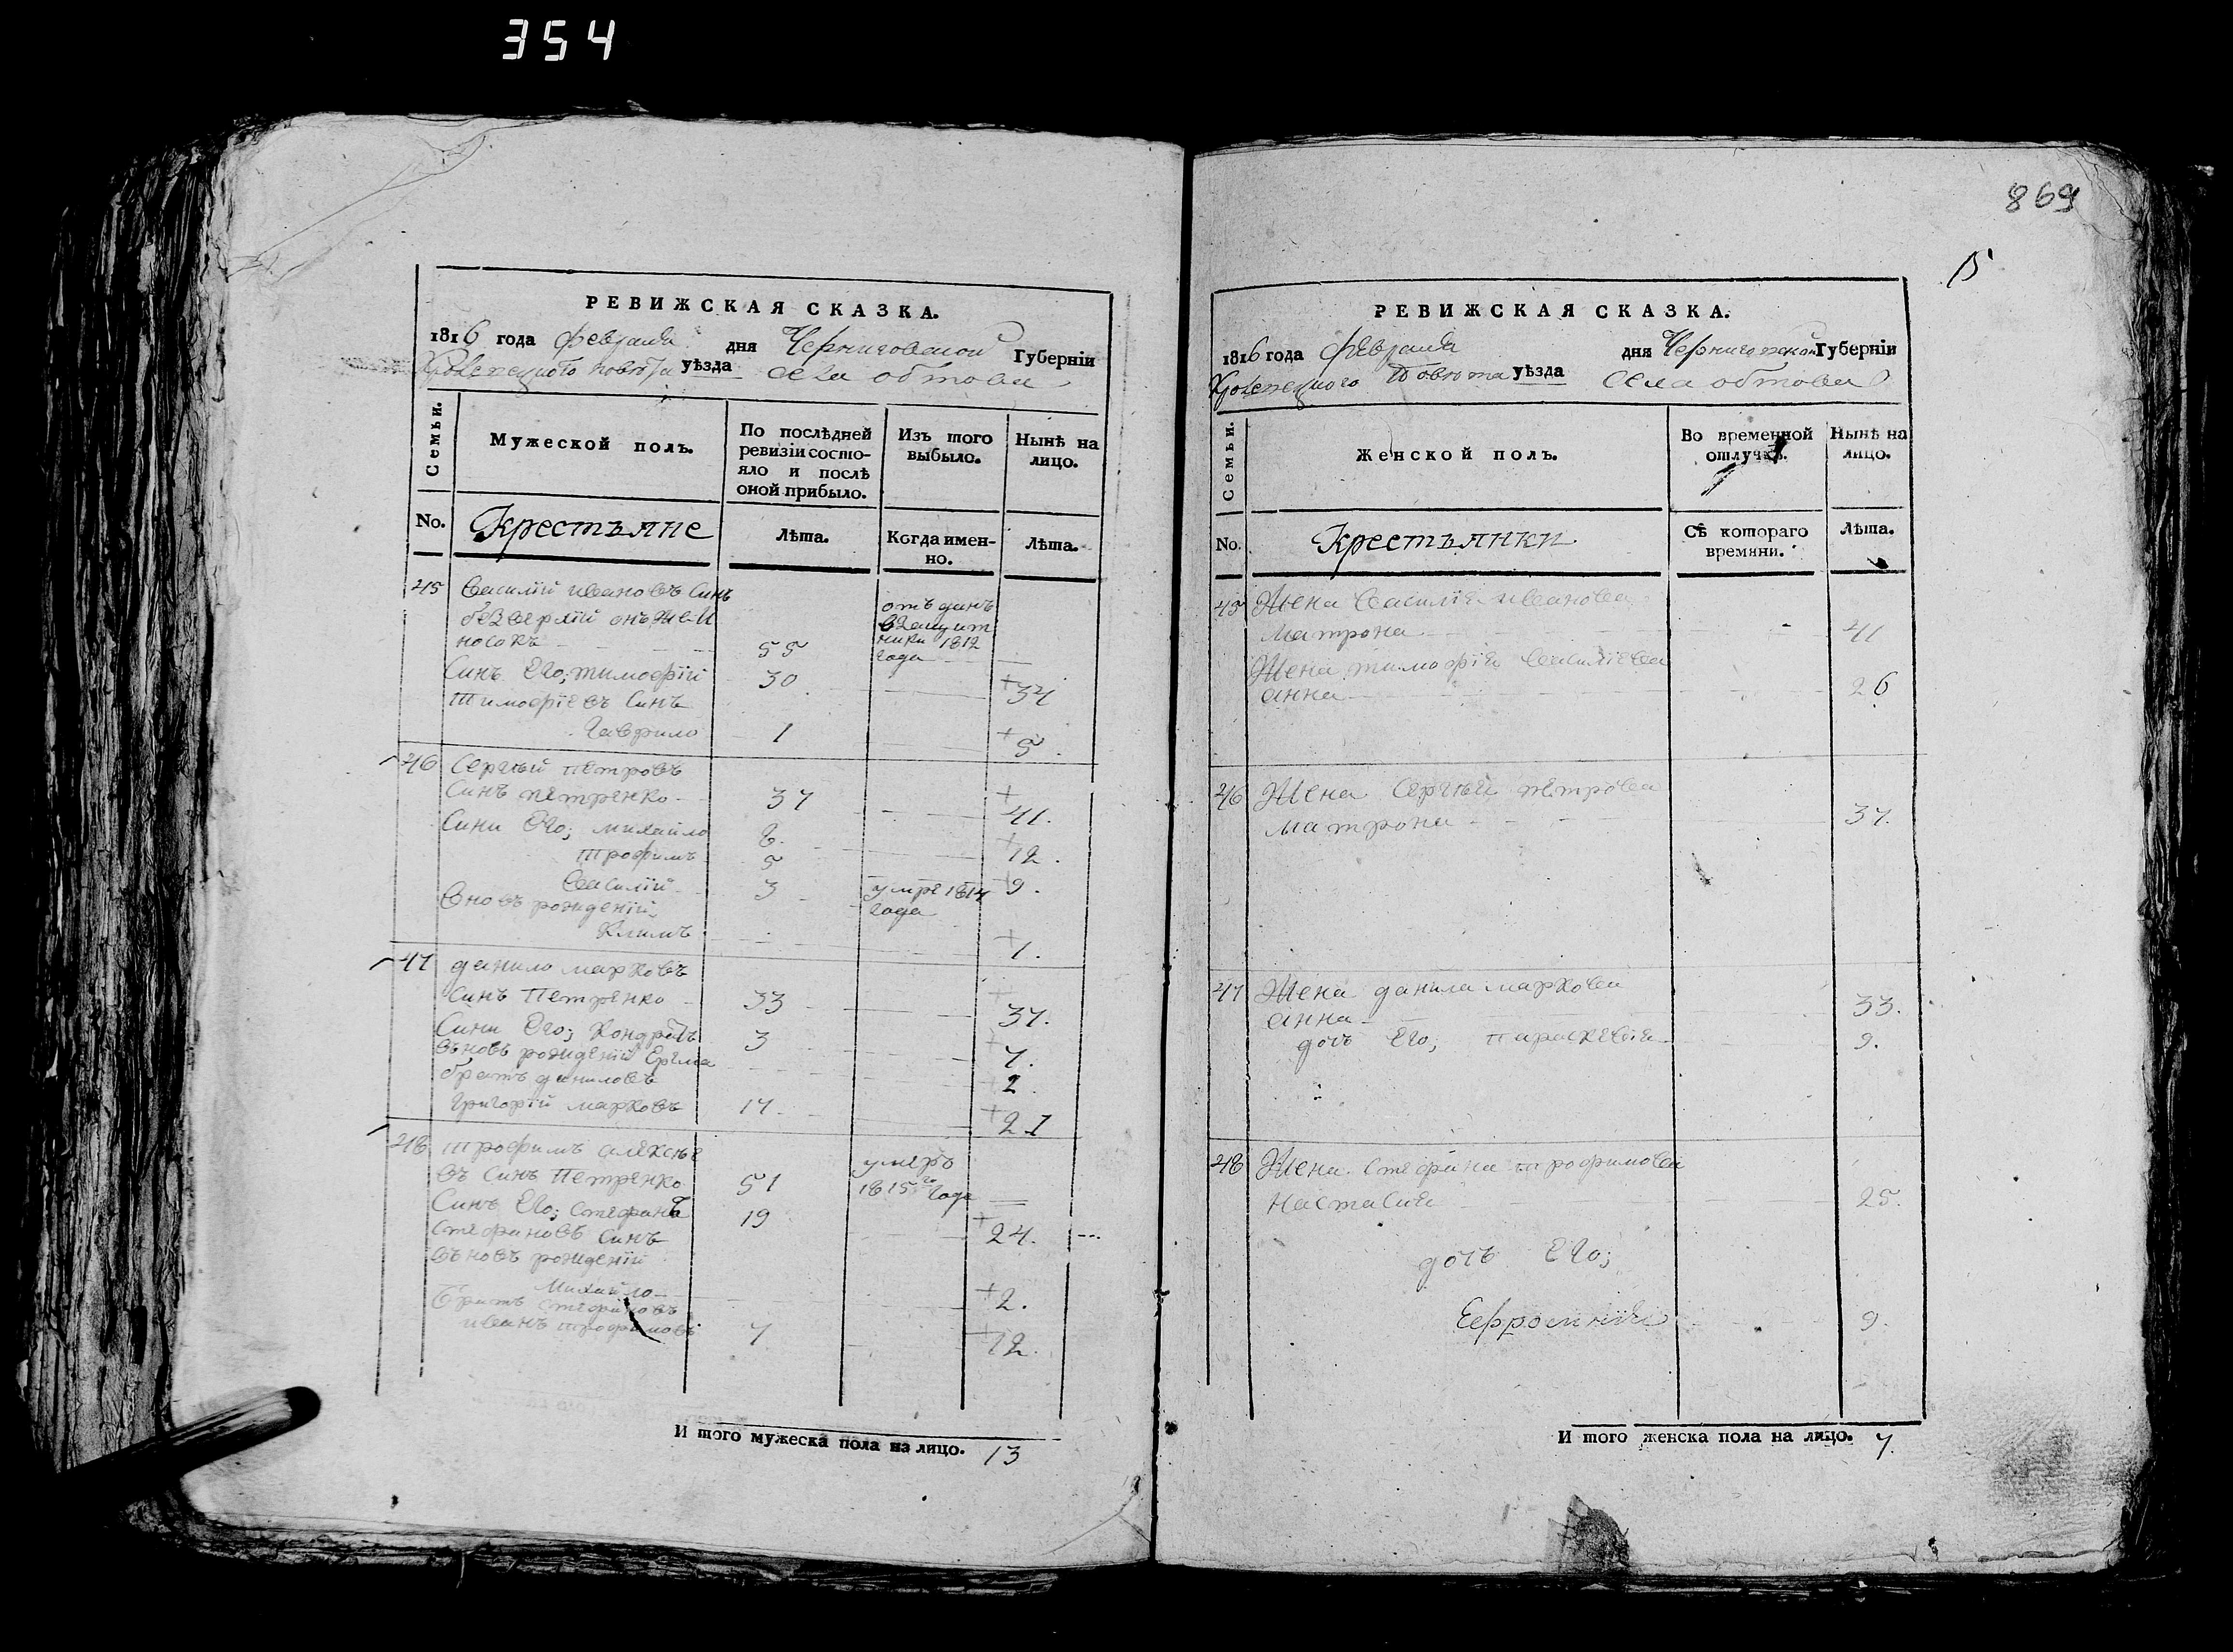 354
РЕВИЖСКАЯ СКАЗКА.
1816 года февраля дня Черниговской Губерніи
Кролевецкого повѣта уѣзда села обтова
Семьи.
Мужеской полъ.
По послѣдней ревизіи состояло и послѣ оной прибыло.
Изъ того выбыло.
Нынѣ на лицо.
No.
Крестъяне
Лѣта.
Когда именно.
Лѣта.
45 Василій ивановъ Синъ
отъ данъ
носокъ 55
1812
года
Синъ Его; тимофій 30 34
тимофіевъ Синъ
Гаврило 1 5
46 Сергѣй петровъ
Синъ петренко 37 41.
Сини Его; михайло 8. 12.
трофимъ 5 9.
Василій 3 умре 1814
года
Вновъ рожденій
Климъ 1.
47 данило марковъ
Синъ Петренко 33 37.
Сини Его; Кондратъ 3 7.
вновъ рожденій Ерема 2.
братъ даниловъ
григорій марковъ 17. 21
48 трофимъ алексѣе
въ Синъ Петренко 51 умеръ
1815го года
Синъ Его; Стефанъ 19 24.
стефановъ Синъ
вновъ рожденій
Михайло 2.
братъ стефановъ
иванъ трофимовъ 7 12.
И того мужеска пола на лицо. 13
869
15
РЕВИЖСКАЯ СКАЗКА.
1816 года февраля дня Черниговской Губерніи
Кролевецкого Повѣта уѣзда села обтова
Семьи.
Женской полъ.
Во временной отлучкѣ.
Нынѣ на лицо.
No.
Крестъянки
Съ котораго времяни.
Лѣта.
45 Жена Василія иванова
матрона 41
Жена тимофія василіева
анна 26
46 Жена Сергѣя петрова
матрона 37.
47 Жена данила маркова
анна 33.
дочъ Его; параскевія 9.
48 Жена Стефана трофимова
настасия 25.
дочъ Его;
Еефросинія 9.
И того женска пола на лицо. 7.